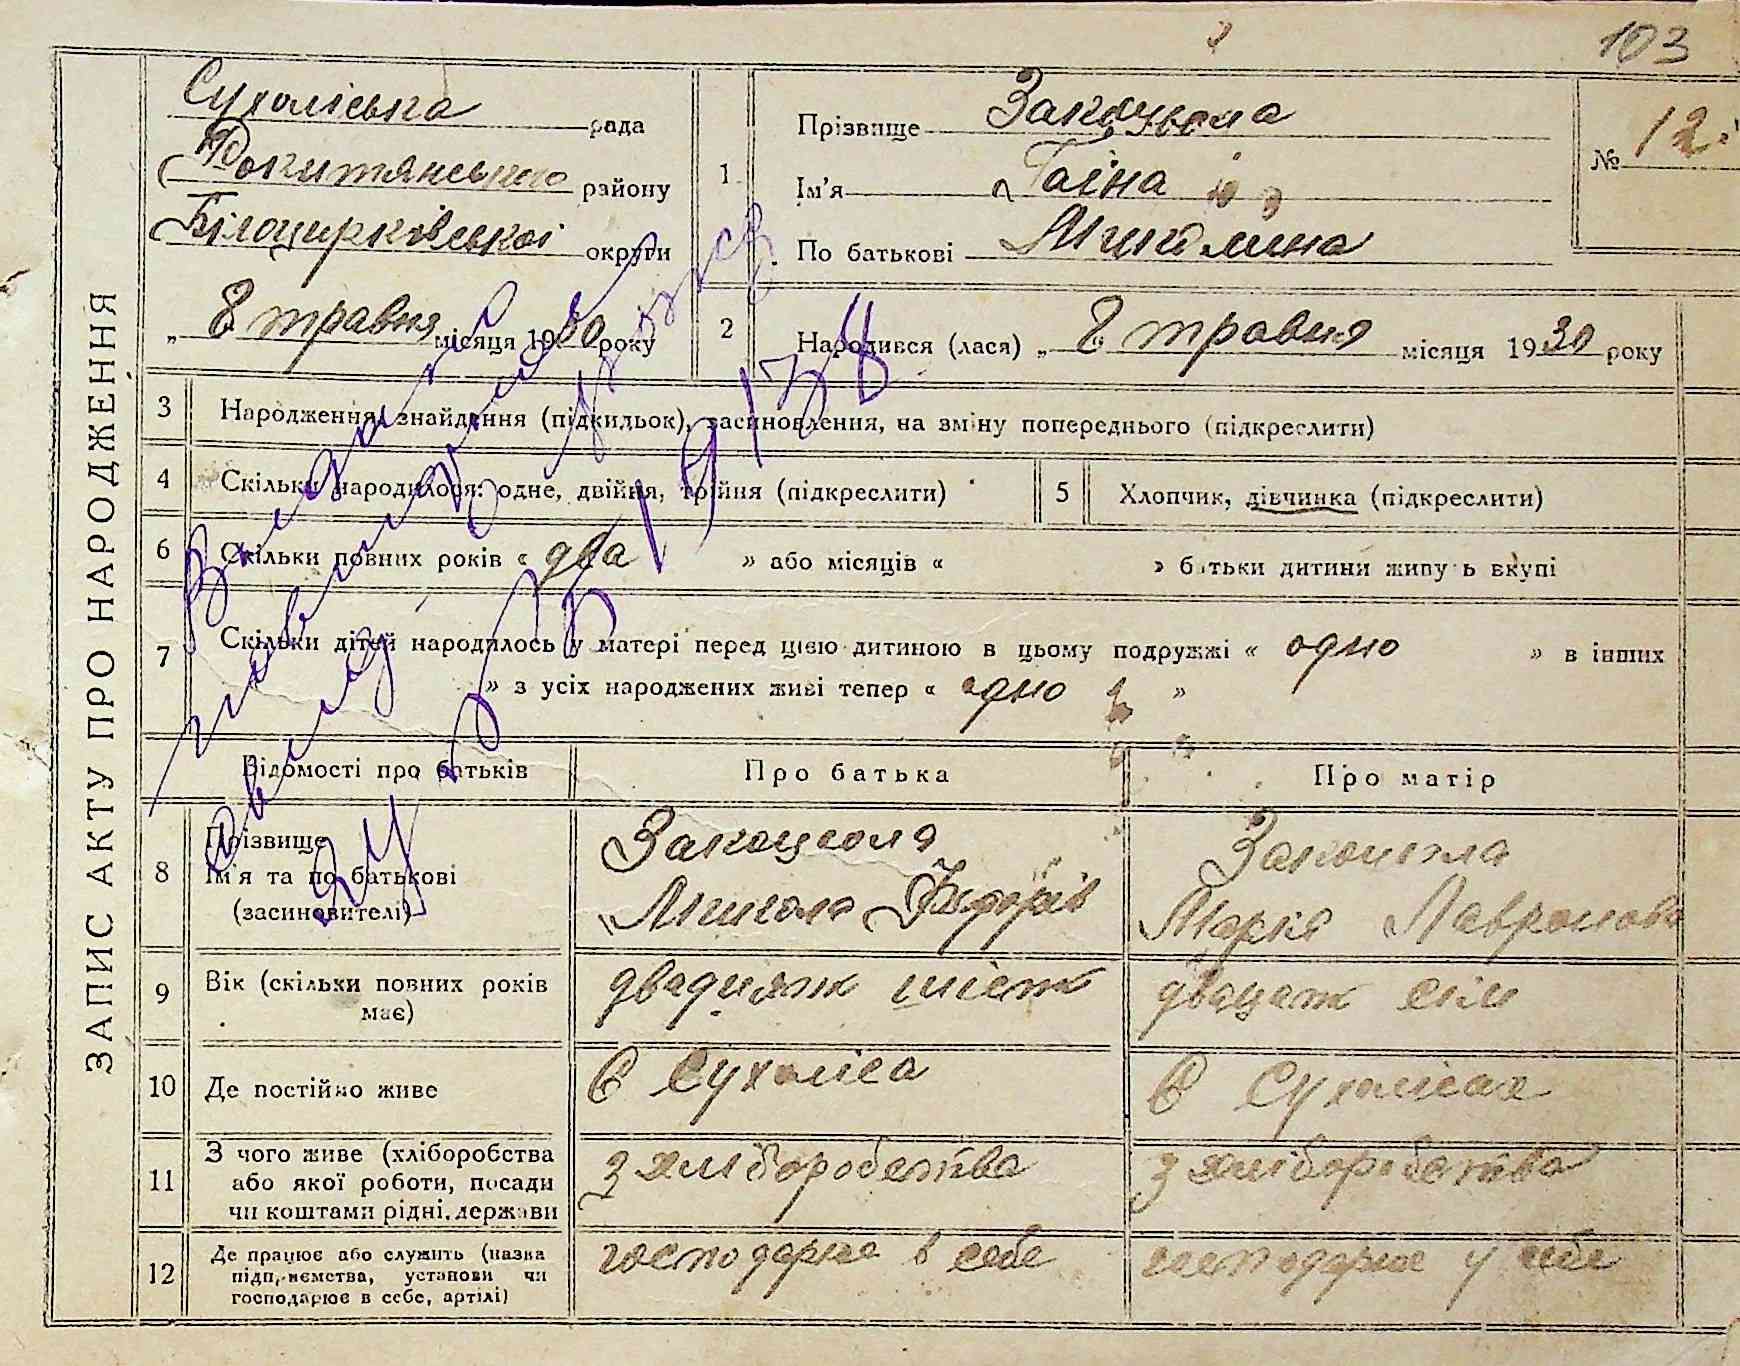 103
ЗАПИС АКТУ ПРО НАРОДЖЕННЯ
Сухоліська рада
Рокитянського району
Білоцерківської округи
„ 8 травня місяця 1930 року
1 Прізвище
Ім'я Гаіна
По батькові
№ 12
2 Народився (лася) „ 8 травня місяця 1930 року
3 Народження, знайдення (підкидьок), засиновлення, на зміну попереднього (підкреслити)
4 Скільки народилося: одне, двійня, трійня (підкреслити)
5 Хлопчик, дівчинка (підкреслити)
6 Скільки повних років « два » або місяців « » батьки дитини живуть вкупі
7 Скільки дітей народилось у матері перед цією дитиною в цьому подружжі « одно » в інших
» з усіх народжених живі тепер « одно »
Відомості про батьків Про батька Про матір
8 Прізвище
Ім'я та по батькові
(засиновителі)
Микола Федорів
Марія
9 Вік (скільки повних років має)
двадцять шість
сім
10 Де постійно живе
в Сухоліса
в Сухолісах
11 З чого живе (хліборобства
або якої роботи, посади
чи коштами рідні, держави
з хліборобства
з хліборобства
12 Де працює або служить (назва
підприємства, установи чи
господарює в себе, артілі)
господарює в себе
господарює у себе